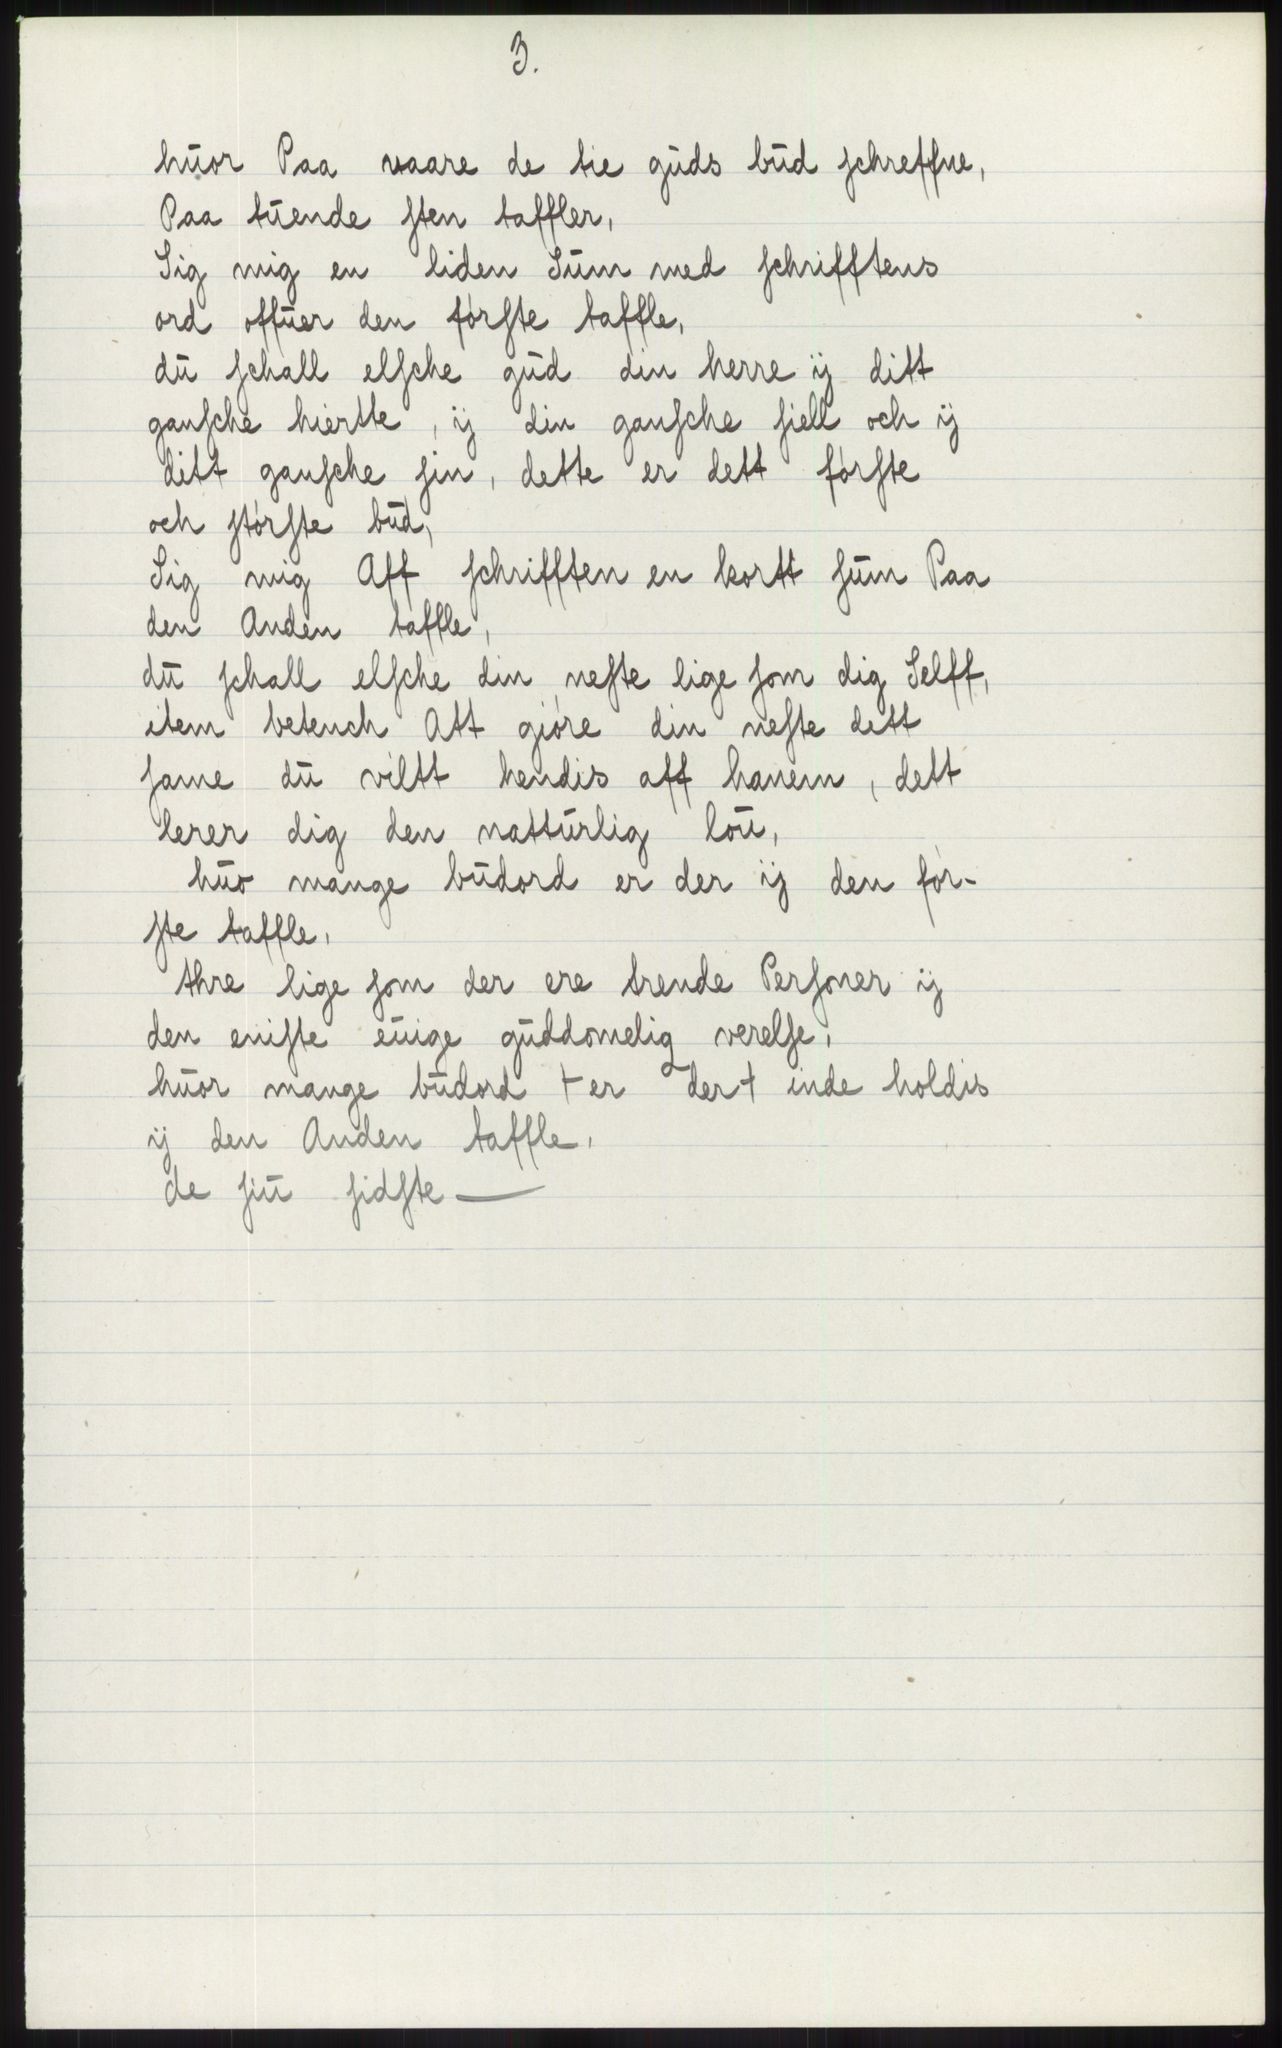 3.
huor Paa vaare de tie guds bud schreffne,
Paa tuende sten taffler,
Sig mig en liden Sum med schrifftens
ord offuer den første taffle,
du schall elsche gud din herre ij ditt
gansche hiertte, ij din gansche siell och ij
ditt gansche sin, dette er dett første
och største bud,
Sig mig Aff schrifften en kortt sum Paa
den Anden taffle,
du schall elsche din neste lige som dig Selff,
item betench Att giøre din neste dett
same du viltt hendis aff hanem, dett
lerer dig den natturlig lou,
huo mange budord er der ij den før-
ste taffle,
thre lige som der ere trende Personer ij
den eniste euige guddomelig verelse,
huor mange budord + er der + inde holdis
ij den Anden taffle,
de siu sidste —